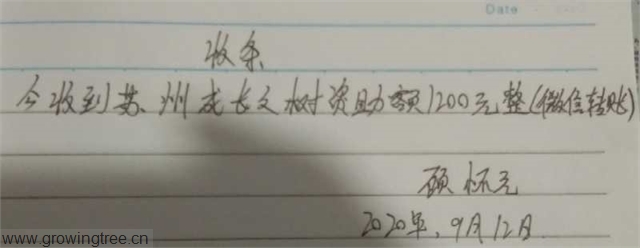 Date
收条
今收到苏州成长之树资助额1200元整(微信转账)
顾怀元
2020年.9月12日
www.growingtree.cn